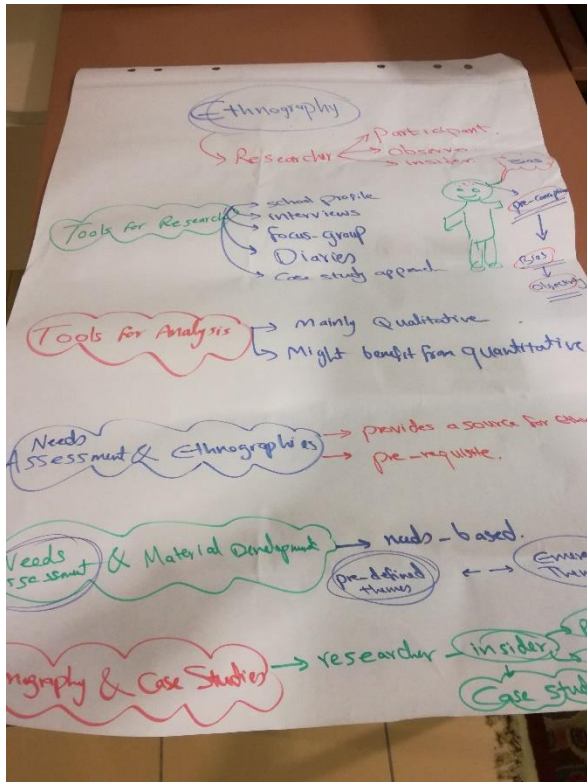 Ethnography
Researcher
Participant.
Observe
insider
Bias
Tools for Research
school profile
interviews
focus-group
Diaries
Case study
pre-conception
Bias
Tools for Analysis
Mainly Qualitative
Might benefit from quantitative
Needs
Assessment & Ethnographies
provides a source for
pre-requisite.
Needs
& Material Development
needs-based.
pre-defined
themes
& Case Studies
researcher
insider
Case